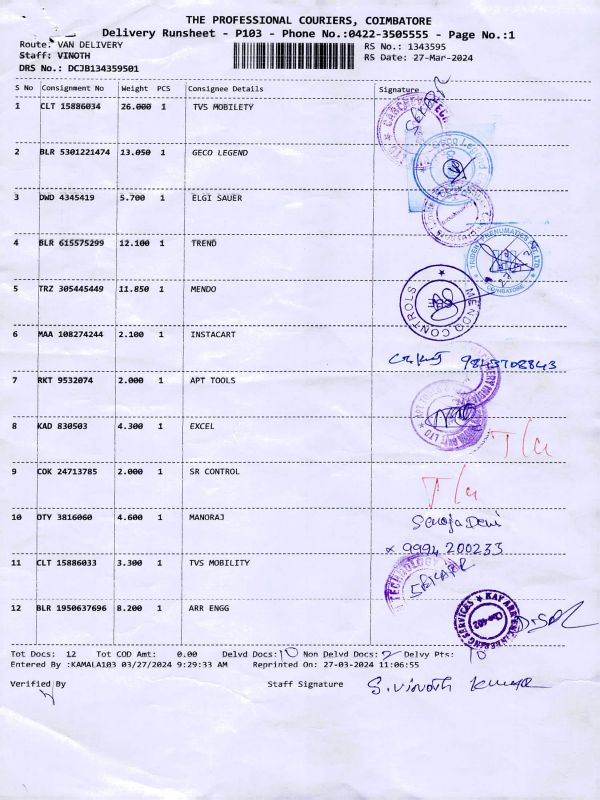 THE PROFESSIONAL COURIERS, COIMBATORE
Delivery Runsheet - P103 - Phone No.:0422-3505555 - Page No.:1
Route: VAN DELIVERY RS No.: 1343595
Staff: VINOTH RS Date: 27-Mar-2024
DRS No.: DCJB134359501
S No Consignment No Weight PCS Consignee Details Signature
1 CLT 15886034 26.000 1 TVS MOBILETY
SEKAR
2 BLR 5301221474 13.050 1 GECO LEGEND
3 DWD 4345419 5.700 1 ELGI SAUER
4 BLR 615575299 12.100 1 TREND
COIMBATORE
5 TRZ 305445449 11.850 1 MENDO
MENDO CONTROLS
6 MAA 108274244 2.100 1 INSTACART
9843708843
7 RKT 9532074 2.000 1 APT TOOLS
8 KAD 830503 4.300 1 EXCEL
9 COK 24713785 2.000 1 SR CONTROL
10 OTY 3816060 4.600 1 MANORAJ
Saroja Devi
9994 200233
11 CLT 15886033 3.300 1 TVS MOBILITY
TECHNOLOGY
SEKAR
12 BLR 1950637696 8.200 1 ARR ENGG
Tot Docs: 12 Tot COD Amt: 0.00 Delvd Docs: 10 Non Delvd Docs: 2 Delvy Pts: 10
Entered By :KAMALA103 03/27/2024 9:29:33 AM Reprinted On: 27-03-2024 11:06:55
Verified By Staff Signature S. Vinoth Kumar